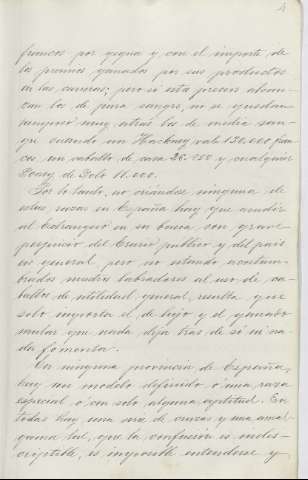 4
francos por yegua y con el importe de
los premios ganados por sus productos
en las carreras; pero si esta precios alcan-
zan los de pura sangre, no se quedan
tampoco muy atras los de media san-
gre cuando un Hackney vale 150.000 fran-
cos un caballo de caza 26.250 y cualquier
Poney de Polo 11.000.
Por lo tanto, no criandose ninguna de
estas razas en España hay que acudir
al extrangero en su busca con grave
perjuicio del Erario publico y del pais
en general, pero no estando acostum-
brados nuestros labradores al uso de ca-
ballos de utilidad general, resulta, que
solo importa el de lujo y el ganado
mular que nada deja tras de si ni na-
da fomenta.
En ninguna provincia de España,
hay un modelo definido ó una raza
especial ó con sola alguna aptitud. En
todas hay una serie de cruzas y una amal-
gama tal, que la confusión es indes-
criptible, es imposible entenderse y